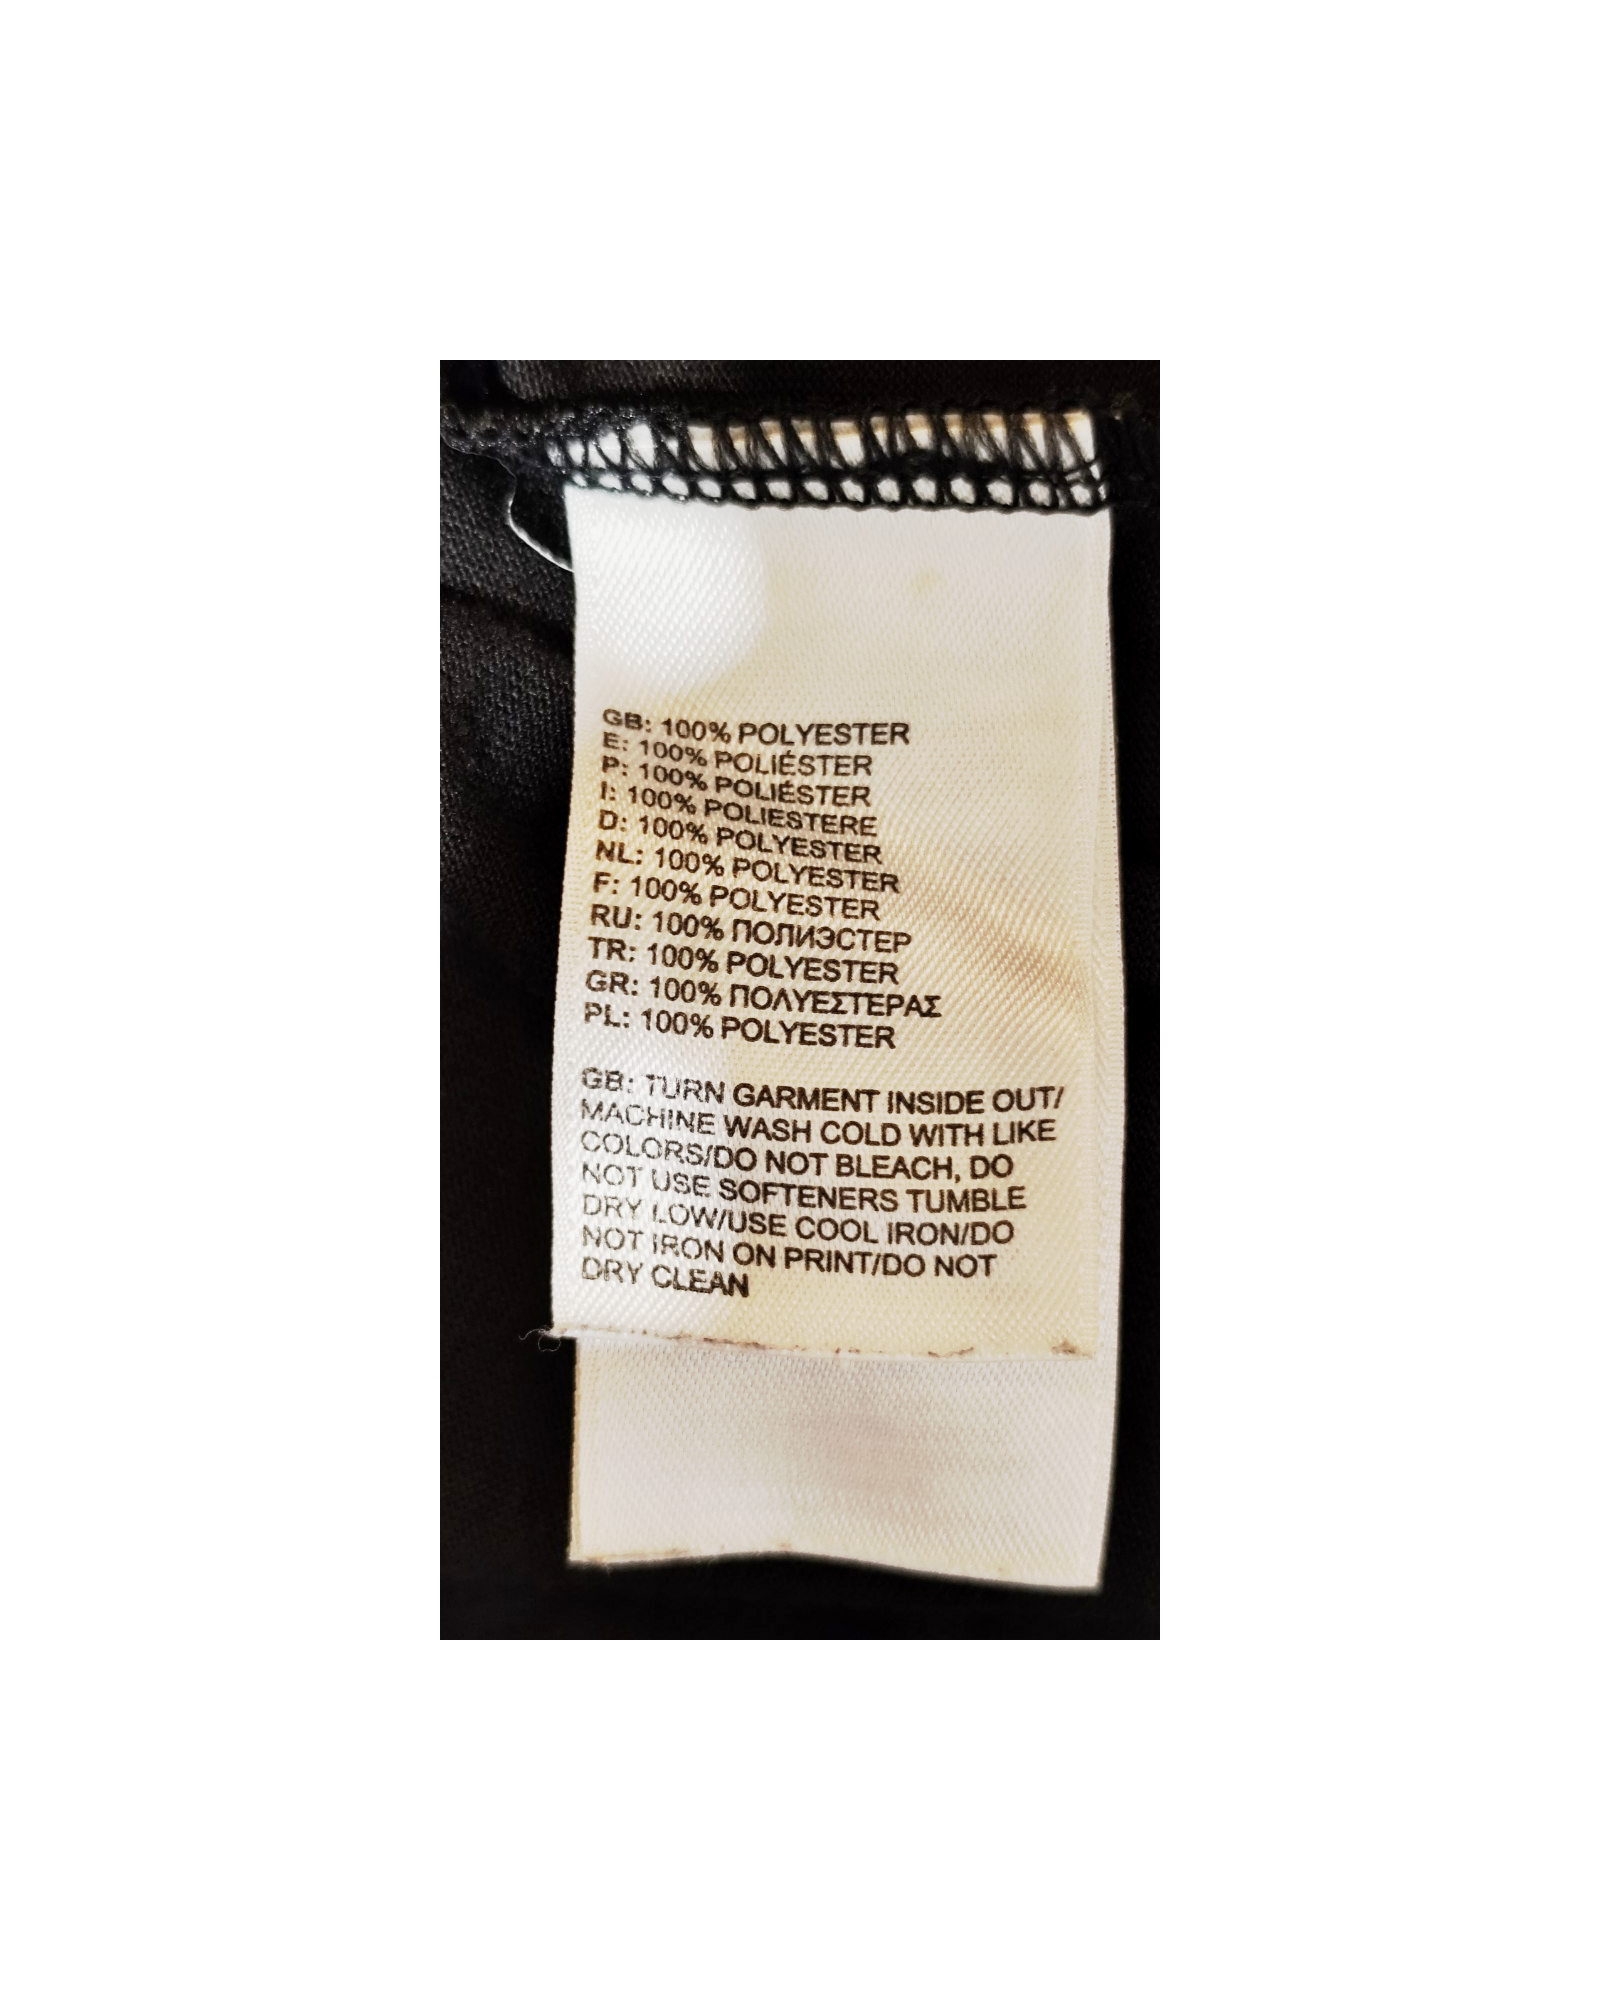 GB: 100% POLYESTER
E: 100% POLIÉSTER
P: 100% POLIÉSTER
I: 100% POLIESTERE
D: 100% POLYESTER
NL: 100% POLYESTER
F: 100% POLYESTER
RU: 100% ПОЛИЭСТЕР
TR: 100% POLYESTER
GR: 100% ΠΟΛΥΕΣΤΕΡΑΣ
PL: 100% POLYESTER
GB: TURN GARMENT INSIDE OUT/
MACHINE WASH COLD WITH LIKE
COLORS/DO NOT BLEACH, DO
NOT USE SOFTENERS TUMBLE
DRY LOW/USE COOL IRON/DO
NOT IRON ON PRINT/DO NOT
DRY CLEAN